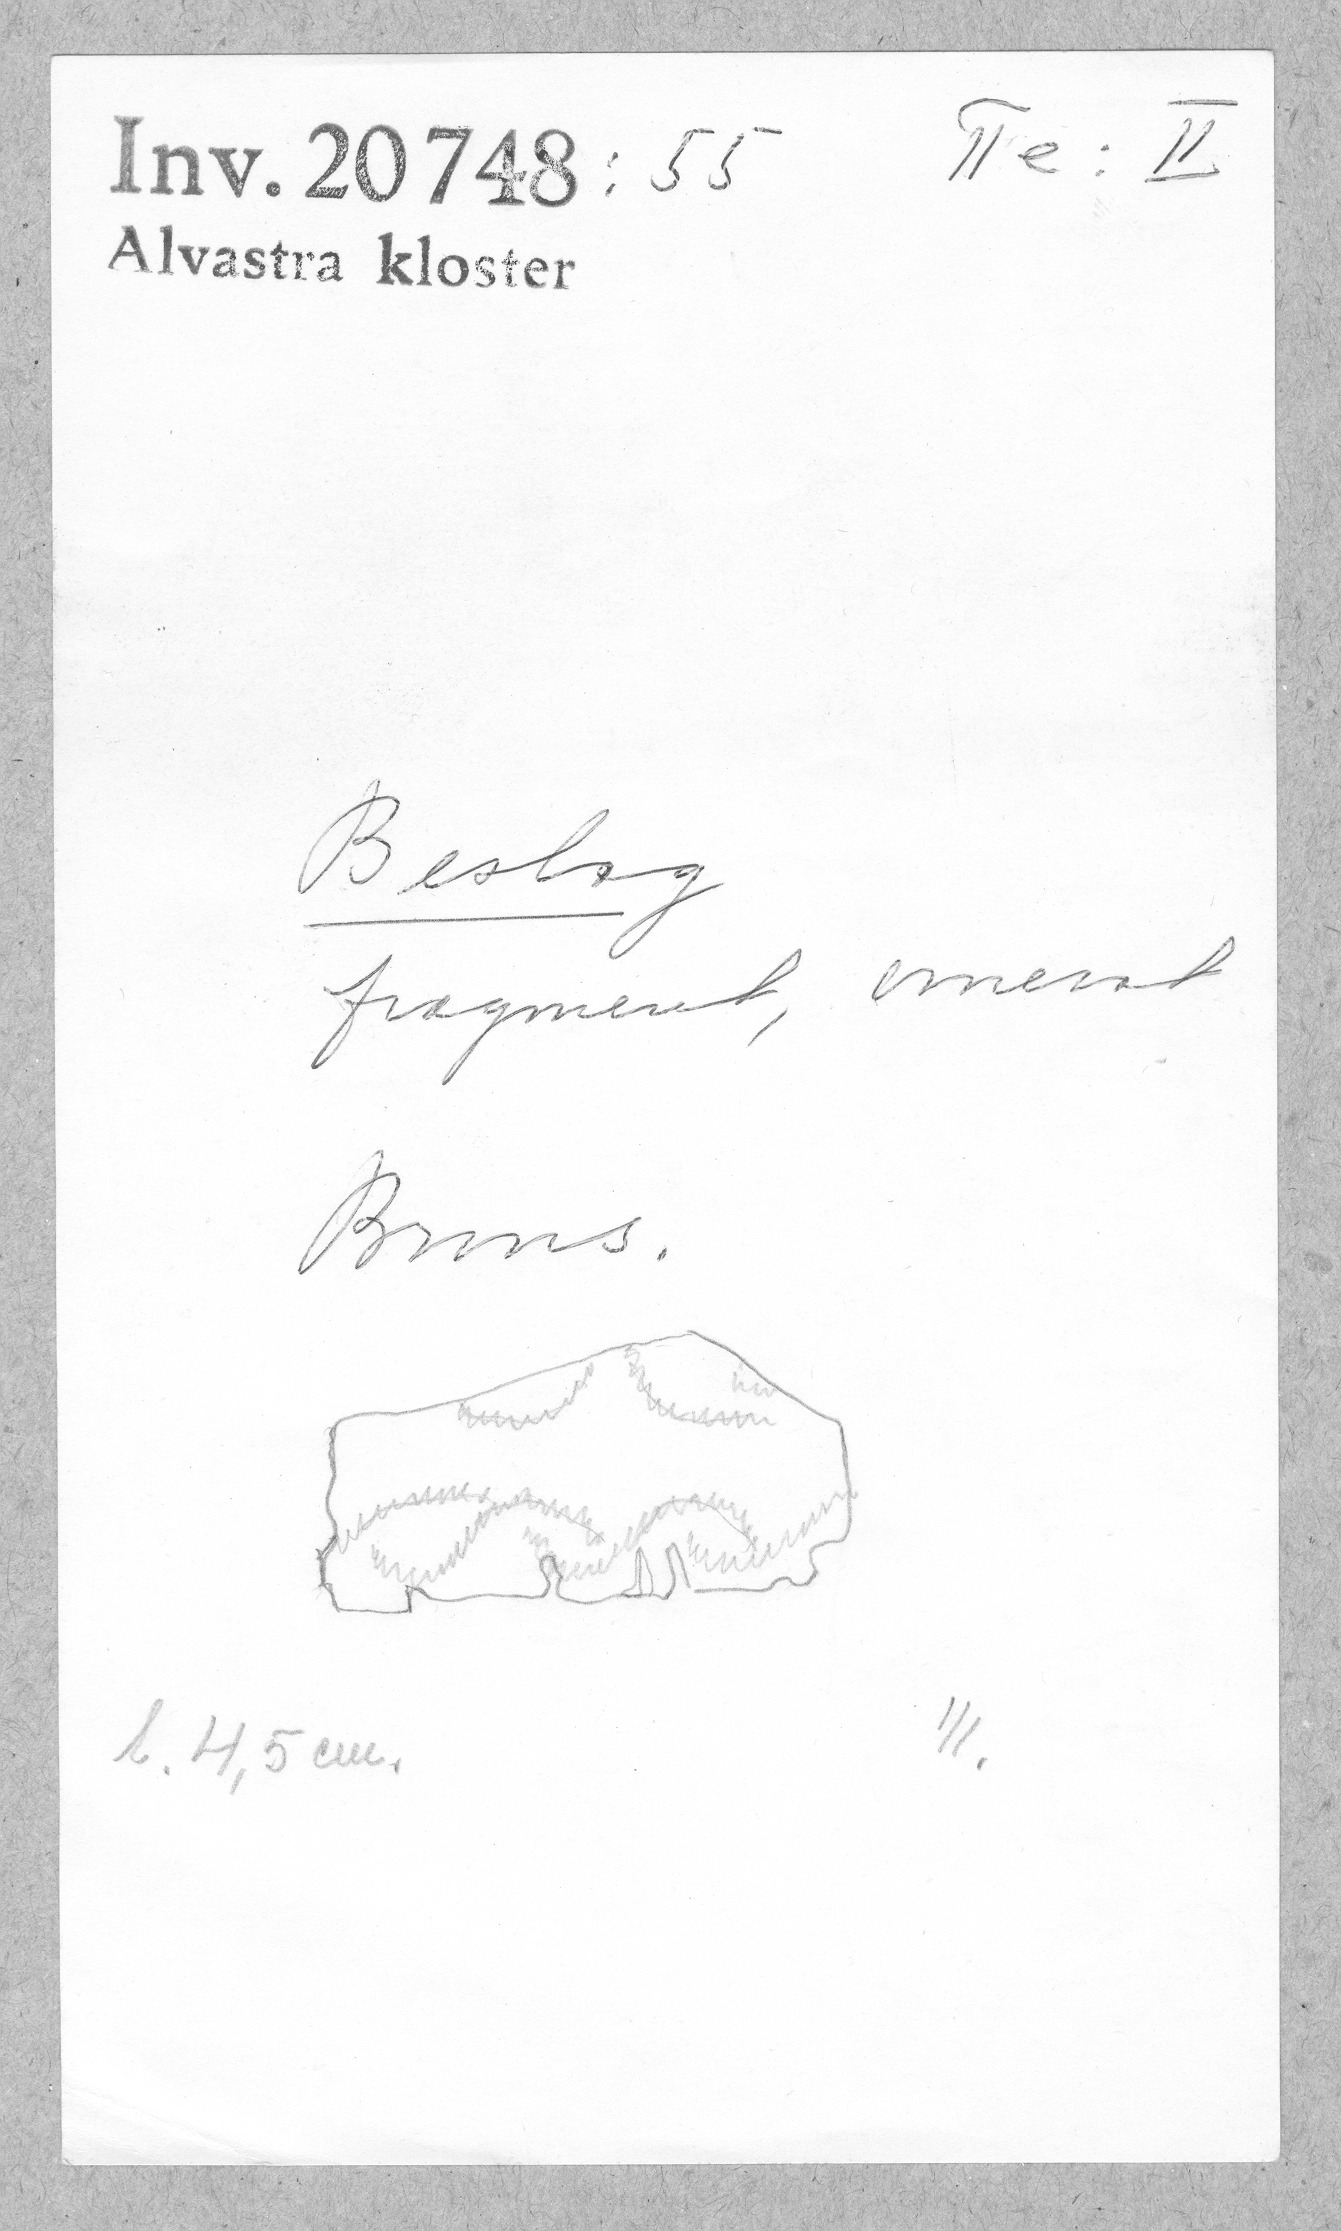 Inv. 20 748 : 55 IIe : II
Alvastra kloster
Beslag
fragment, ornerat
Brons.
l. 4,5 cm. 1/1.